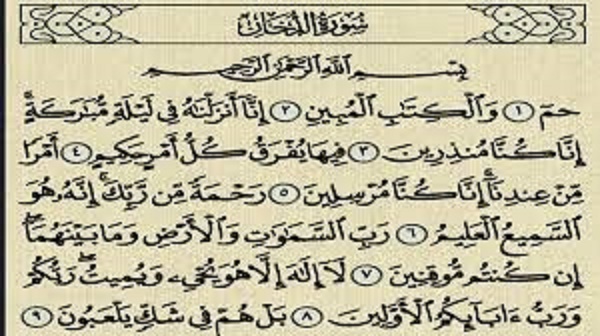 سُورَةُ الدُّخَانِ
بِسْمِ اللَّهِ الرَّحْمَٰنِ الرَّحِيمِ
حمٓ ١ وَٱلْكِتَٰبِ ٱلْمُبِينِ ٢ إِنَّآ أَنزَلْنَٰهُ فِى لَيْلَةٍ مُّبَٰرَكَةٍ ۚ
إِنَّا كُنَّا مُنذِرِينَ ٣ فِيهَا يُفْرَقُ كُلُّ أَمْرٍ حَكِيمٍ ٤ أَمْرًا
مِّنْ عِندِنَآ ۚ إِنَّا كُنَّا مُرْسِلِينَ ٥ رَحْمَةً مِّن رَّبِّكَ ۚ إِنَّهُۥ هُوَ
ٱلسَّمِيعُ ٱلْعَلِيمُ ٦ رَبِّ ٱلسَّمَٰوَٰتِ وَٱلْأَرْضِ وَمَا بَيْنَهُمَآ ۖ
إِن كُنتُم مُّوقِنِينَ ٧ لَآ إِلَٰهَ إِلَّا هُوَ يُحْىِۦ وَيُمِيتُ ۖ رَبُّكُمْ
وَرَبُّ ءَابَآئِكُمُ ٱلْأَوَّلِينَ ٨ بَلْ هُمْ فِى شَكٍّ يَلْعَبُونَ ٩